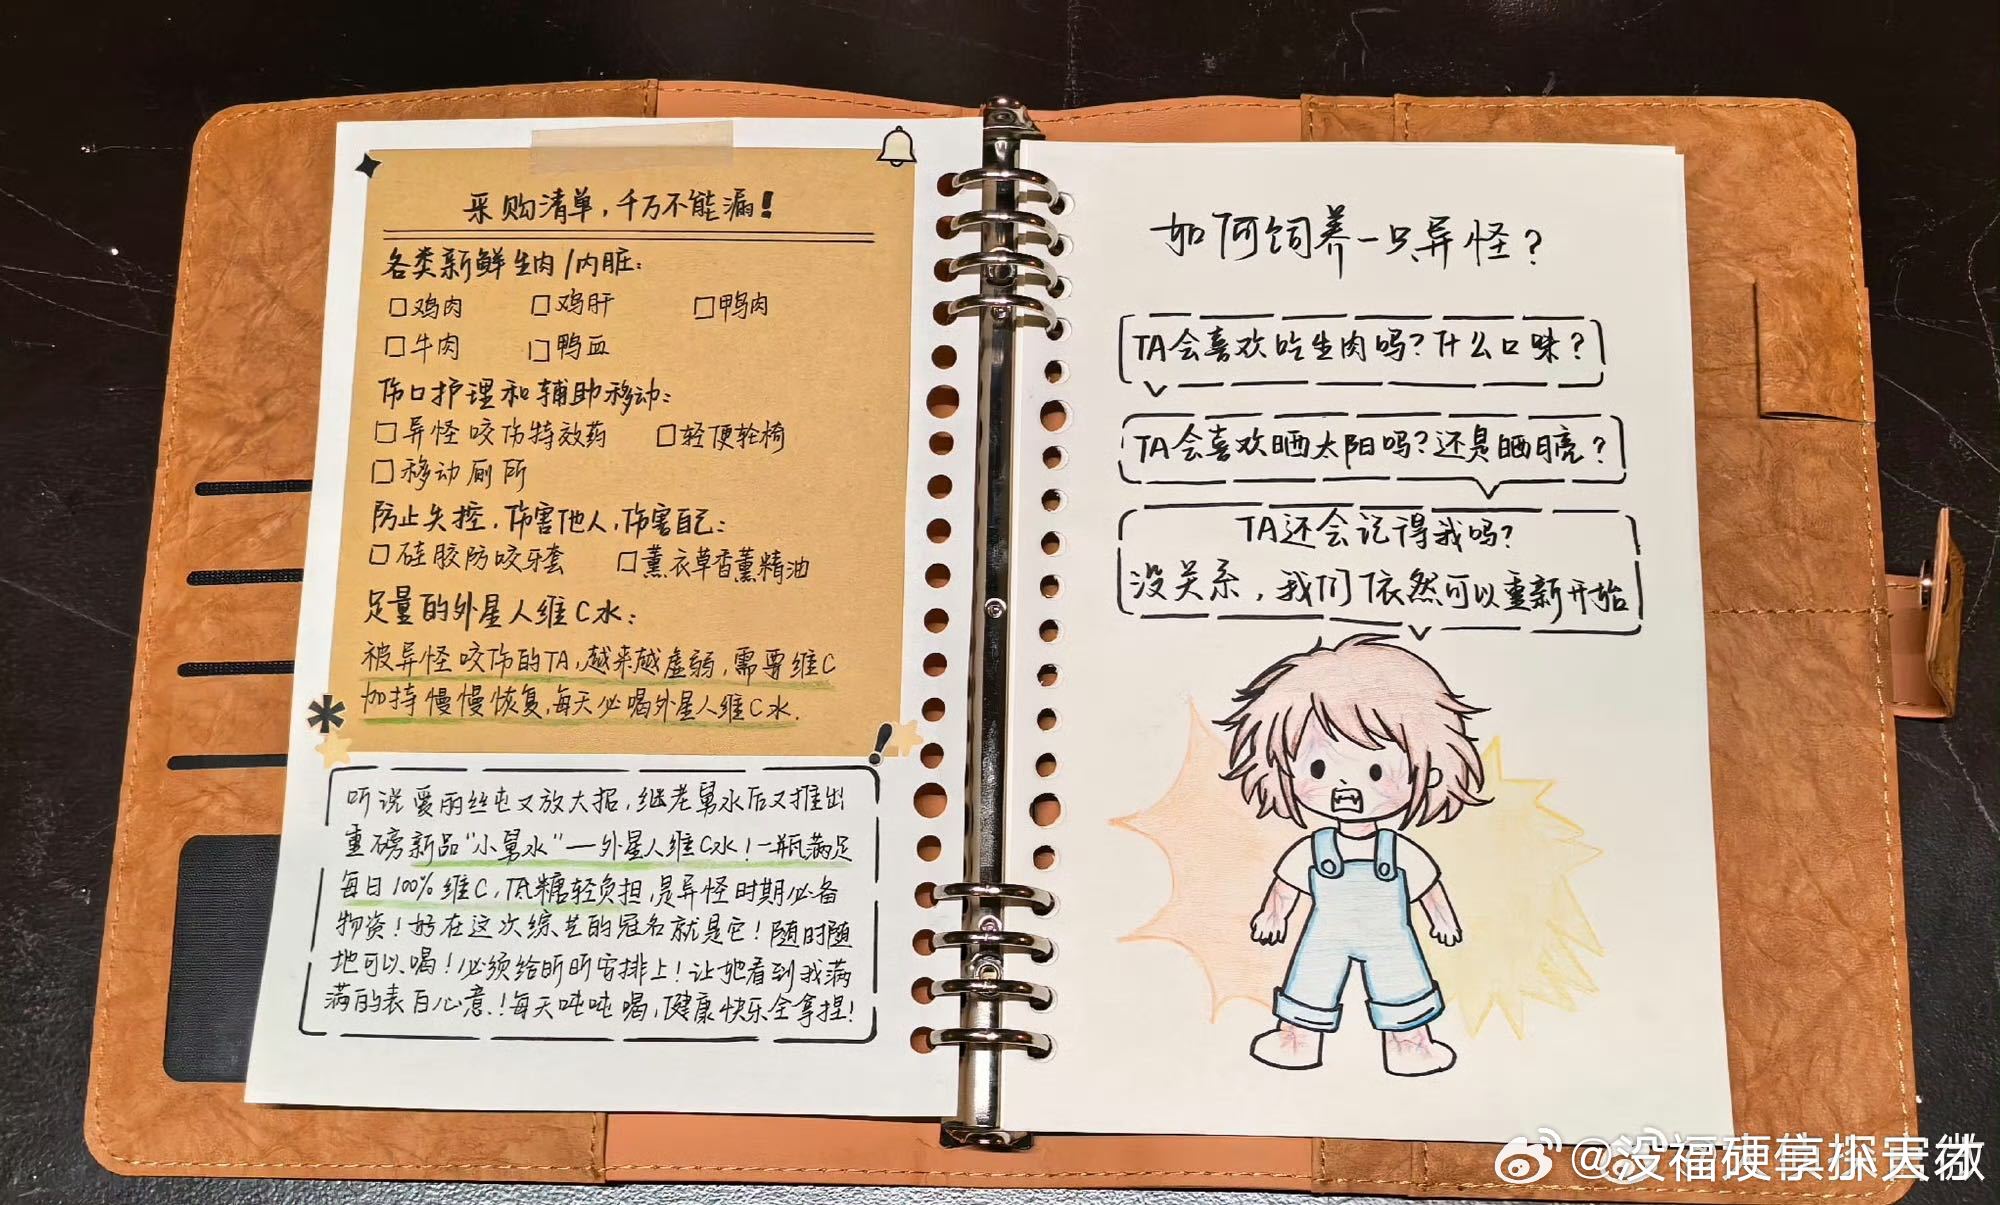 采购清单，千万不能漏！
各类新鲜生肉/内脏：
□鸡肉 □鸡肝 □鸭肉
□牛肉 □鸭血
伤口护理和辅助移动：
□异怪咬伤特效药 □轻便轮椅
□移动厕所
防止失控，伤害他人，伤害自己：
□硅胶防咬牙套 □薰衣草香薰精油
足量的外星人维C水：
被异怪咬伤的TA，越来越虚弱，需要维C
加持慢慢恢复，每天必喝外星人维C水.
听说爱丽丝屯又放大招，继老舅水后又推出
重磅新品“小舅水”—外星人维C水！一瓶满足
每日100%维C，低糖轻负担，是异怪时期必备
物资！好在这次综艺的冠名就是它！随时随
地可以喝！必须给昕昕安排上！让她看到我满
满的表白心意！每天吨吨喝，健康快乐全拿捏！
如何饲养一只异怪？
TA会喜欢吃生肉吗？什么口味？
TA会喜欢晒太阳吗？还是晒月亮？
TA还会记得我吗？
没关系，我们依然可以重新开始